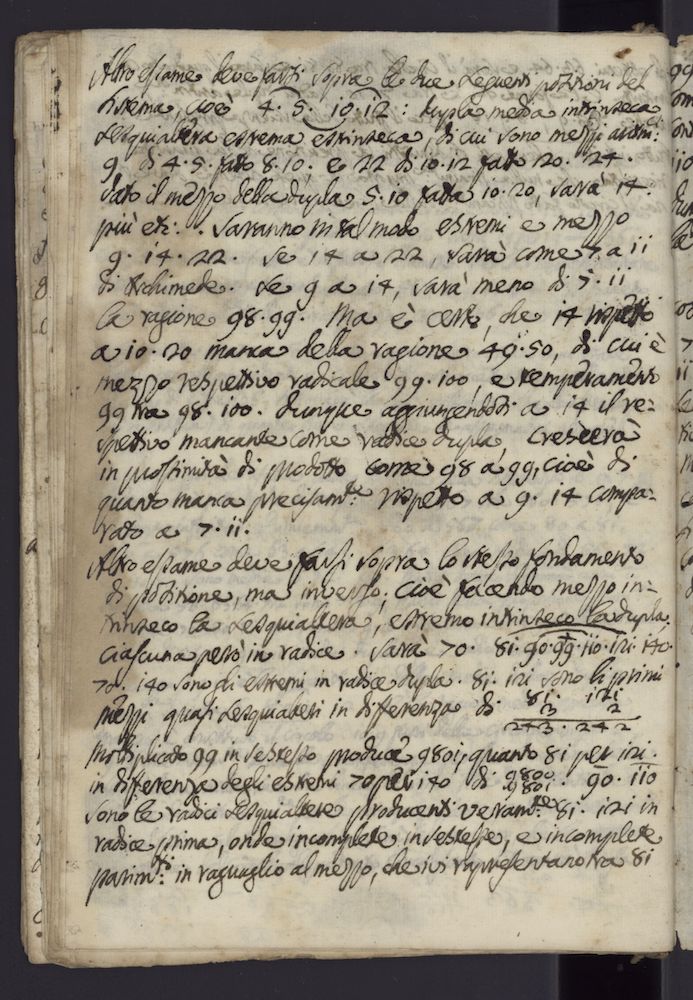 Altro esame deve farsi sopra le due seguenti posizioni del
sistema, cioè 4. 5. 10. 12: dupla media intrinseca,
sesquialtera estrema estrinseca, di cui sono mezzi aritm:
9 di 4. 5. fatto 8. 10. e 22 di 10. 12 fatto 20. 24.
Dato il mezzo della dupla 5. 10 fatta 10. 20, sarà 14.
più etc: . Saranno in tal modo estremi e mezzo
9. 14. 22. Se 14 a 22, sarà come 7 a 11
di Archimede. Se 9 a 14, sarà meno di 7. 11
la ragione 98. 99. Ma è certo, che 14 rispetto
a 10. 20 manca della ragione 49. 50, di cui è
mezzo respettivo radicale 99. 100, e temperamento
99 tra 98. 100. Dunque aggiungendosi a 14 il re=
spettivo mancante come radice dupla, crescerà
in prossimità di prodotto come 98 a 99, cioè di
quanto manca precisamte: rispetto a 9. 14 compa=
rato a 7. 11.
Altro esame deve farsi sopra lo stesso fondamento
di posizione, ma inverso; cioè facendo mezzo in=
trinseco la sesquialtera, estremo intrinseco la dupla.
ciascuna però in radice. Sarà 70. 81. 90. 99. 110. 121. 140.
70. 140 sono gli estremi in radice dupla. 81. 121 sono li primi
mezzi quasi sesquialteri in differenza di 81. 121
3 2
243. 242
Moltiplicato 99 in se stesso produce 9801; quanto 81 per 121.
in differenza degli estremi 70 per 140 di 9800. 9801. 90. 110
sono le radici sesquialtere producenti veramte: 81. 121 in
radice prima, onde incomplete in se stesse, e incomplete
parimti: in ragguaglio al mezzo, che ivi rapresentano tra 81